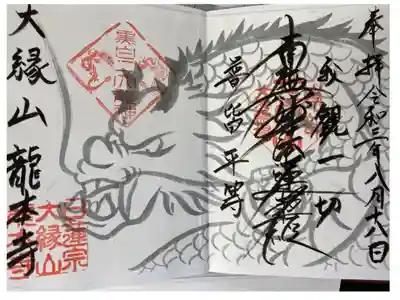 奉拝令和二年八月十八日
我観一切
南無妙法蓮華経
普皆平等
大縁山龍本寺
日蓮宗
大縁山